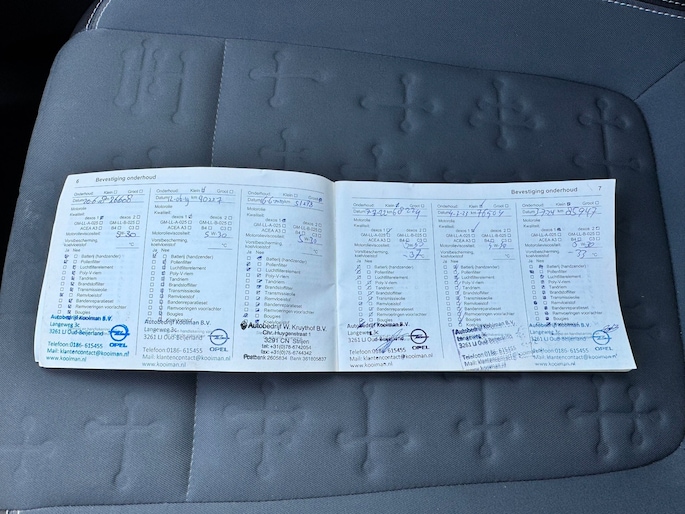 6 Bevestiging onderhoud
Onderhoud: Klein Groot
Datum
Motorolie
Kwaliteit:
dexos 1 dexos 2
GM-LL-A-025 GM-LL-B-025
ACEA A3 B4 C3
Motorolieviscositeit:
Vorstbescherming
koelvloeistof °C
Ja Nee
Batterij (handzender)
Pollenfilter
Luchtfilterelement
Poly V-riem
Tandriem
Brandstoffilter
Transmissieolie
Remvloeistof
Bandenreparatieset
Remvoeringen voor/achter
Bougies
Autobedrijf Kooiman B.V.
Langeweg 3c
3261 LJ Oud-Beijerland
OPEL
Telefoon 0186- 615455
Mail: klantencontact@kooiman.nl
www.kooiman.nl
Onderhoud: Klein Groot
Datum km 90227
Motorolie
Kwaliteit:
dexos 1 dexos 2
GM-LL-A-025 GM-LL-B-025
ACEA A3 B4 C3
Motorolieviscositeit: 5w30
Vorstbescherming
koelvloeistof °C
Ja Nee
Batterij (handzender)
Pollenfilter
Luchtfilterelement
Poly V-riem
Tandriem
Brandstoffilter
Transmissieolie
Remvloeistof
Bandenreparatieset
Remvoeringen voor/achter
Bougies
Autobedrijf Kooiman B.V.
Langeweg 3c
3261 LJ Oud-Beijerland
OPEL
Telefoon 0186- 615455
Mail: klantencontact@kooiman.nl
www.kooiman.nl
Onderhoud: Klein Groot
Datum
Motorolie
Kwaliteit:
dexos 1 dexos 2
GM-LL-A-025 GM-LL-B-025
ACEA A3 B4 C3
Motorolieviscositeit: 5w30
Vorstbescherming
koelvloeistof °C
Ja Nee
Batterij (handzender)
Pollenfilter
Luchtfilterelement
Poly V-riem
Tandriem
Brandstoffilter
Transmissieolie
Remvloeistof
Bandenreparatieset
Remvoeringen voor/achter
Bougies
Autobedrijf W. Kruythof B.V.
Chr. Huygenstraat 1
3291 CN Strijen
tel: +31(0)78-6742056
fax: +31(0)78-6744342
Postbank 2605834 Bank 361805837
Bevestiging onderhoud 7
Onderhoud: Klein Groot
Datum
Motorolie
Kwaliteit:
dexos 1 dexos 2
GM-LL-A-025 GM-LL-B-025
ACEA A3 B4 C3
Motorolieviscositeit:
Vorstbescherming
koelvloeistof °C
Ja Nee
Batterij (handzender)
Pollenfilter
Luchtfilterelement
Poly V-riem
Tandriem
Brandstoffilter
Transmissieolie
Remvloeistof
Bandenreparatieset
Remvoeringen voor/achter
Bougies
Autobedrijf Kooiman B.V.
Langeweg 3c
3261 LJ Oud-Beijerland
OPEL
Telefoon 0186- 615455
Mail: klantencontact@kooiman.nl
www.kooiman.nl
Onderhoud: Klein Groot
Datum km 76504
Motorolie
Kwaliteit:
dexos 1 dexos 2
GM-LL-A-025 GM-LL-B-025
ACEA A3 B4 C3
Motorolieviscositeit:
Vorstbescherming
koelvloeistof °C
Ja Nee
Batterij (handzender)
Pollenfilter
Luchtfilterelement
Poly V-riem
Tandriem
Brandstoffilter
Transmissieolie
Remvloeistof
Bandenreparatieset
Remvoeringen voor/achter
Bougies
Autobedrijf Kooiman B.V.
3261 LJ Oud
OPEL
Telefoon 0186- 615455
Mail: klantencontact@kooiman.nl
www.kooiman.nl
Onderhoud: Klein Groot
Datum
Motorolie
Kwaliteit:
dexos 1 dexos 2
GM-LL-A-025 GM-LL-B-025
ACEA A3 B4 C3
Motorolieviscositeit:
Vorstbescherming
koelvloeistof °C
Ja Nee
Batterij (handzender)
Pollenfilter
Luchtfilterelement
Poly V-riem
Tandriem
Brandstoffilter
Transmissieolie
Remvloeistof
Bandenreparatieset
Remvoeringen voor/achter
Bougies
Autobedrijf Kooiman B.V.
Langeweg 3c
3261 LJ Oud-Beijerland
OPEL
Telefoon 0186- 615455
Mail: klantencontact@kooiman.nl
www.kooiman.nl